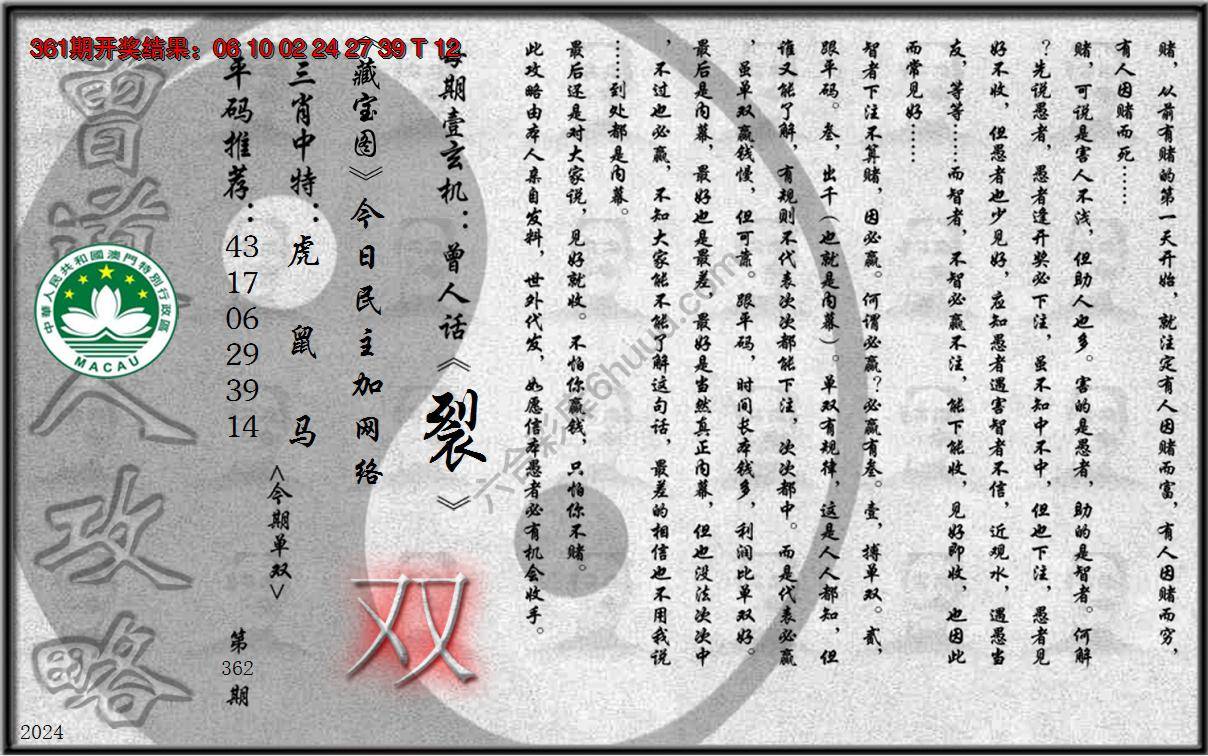 361期开奖结果：06 10 02 24 27 39 T 12
赌，从前有赌的第一天开始，就注定有人因赌而富，有人因赌而穷，
有人因赌而死……
赌，可说是害人不浅，但助人也多。害的是愚者，助的是智者。何解
？先说愚者，愚者逢开奖必下注，虽不知中不中，但也下注，愚者见
好不收，但愚者也少见好，应知愚者遇害智者不信，近观水，遇愚当
友，等等……而智者，不智必赢不注，能下能收，见好即收，也因此
而常见好……
智者下注不算赌，因必赢。何谓必赢？必赢有叁。壹，搏单双。贰，
跟平码。叁，出千（也就是内幕）。单双有规律，这是人人都知，但
谁又能了解，有规则不代表次次都能下注，次次都中。而是代表必赢
，虽单双赢钱慢，但可靠。跟平码，时间长本钱多，利润比单双好。
最后是内幕，最好也是最差，最好是当然真正内幕，但也没法次次中
，不过也必赢，不知大家能不能了解这句话，最差的相信也不用我说
……到处都是内幕。
最后还是对大家说，见好就收。不怕你赢钱，只怕你不赌。
此攻略由本人亲自发料，世外代发，如愿信本愚者必有机会收手。
每期壹玄机：曾人话《裂》
《藏宝图》今日民主加网络
双
三肖中特：虎 鼠 马
<今期单双>
平码推荐：43 17 06 29 39 14
第362期
曾道人攻略
中華人民共和國澳門特別行政區
MACAU
2024